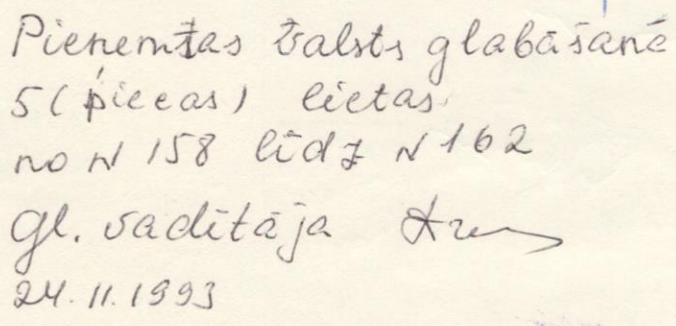 Pieņemtas valsts glabāšanē
5 (piecas) lietas
no N 158 līdz N 162
gl. vadītāja
24.11.1993